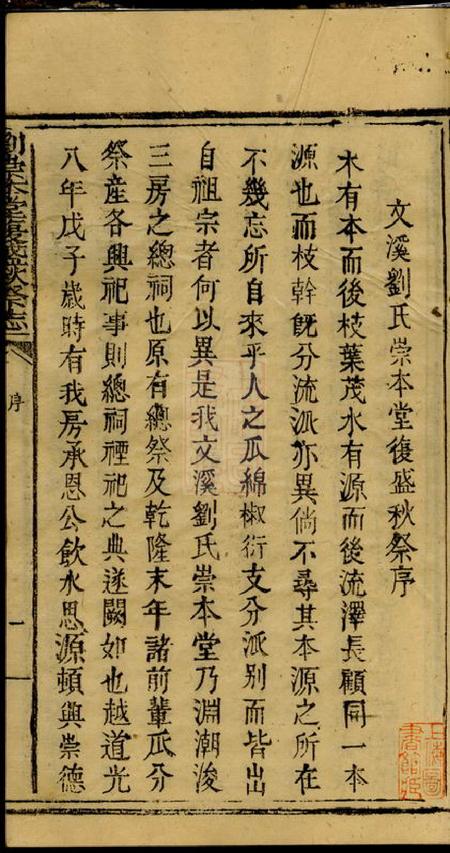 文溪劉氏崇本堂復盛秋祭序
木有本而後枝葉茂水有源而後流澤長顧同一本
源也而枝幹既分流派亦異倘不尋其本源之所在
不幾忘所自來乎人之瓜綿椒衍支分派別而皆出
自祖宗者何以異是我文溪劉氏崇本堂乃淵潮浚
三房之總祠也原有總祭及乾隆末年諸前輩瓜分
祭產各興祀事則總祠禋祀之典遂闕如也越道光
八年戊子歲時有我房承恩公飲水思源頓興崇德
序
一